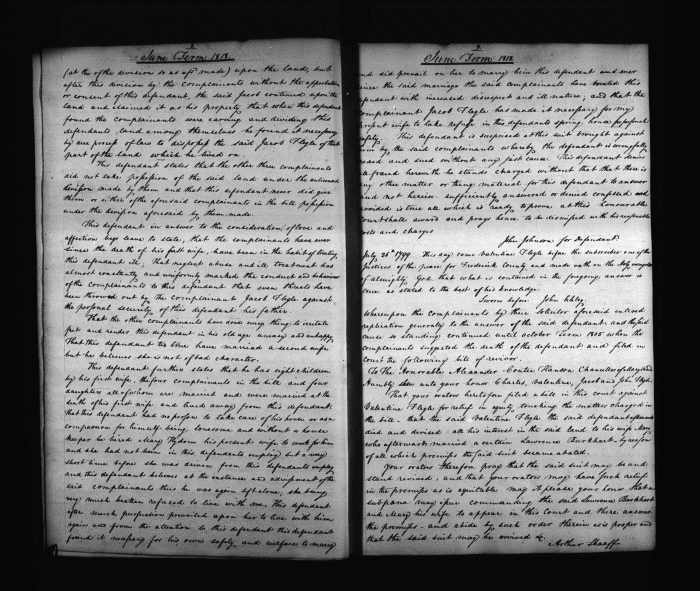 June Term 1818.
(at the of the division so as afd made) upon the land, but
after this division by the Complainants without the approbation
or consent of this defendant, the said Jacob continued upon the
land and claimed it as his property, that when this defendant
found the Complainants were carving and dividing this
defendants land among themselves he found it necessary
by due process of law to disposess the said Jacob Flygle of that
part of the land which he lived on.
This defendant states that the other three complainants
did not take possession of the said land under the
division made by them and that this defendant never did give
them or either of the aforesaid complainants in the bill possession
under the division aforesaid by them made.
This defendant in answer to the consideration of love and
affection begs leave to state, that the complainants have ever
since the death of his first wife, have been in the habit of treating
this defendant ill; that neglect abuse and ill treatment has
almost constantly and uniformly marked the conduct and behaviour
of the complainants to this defendant that even threats have
been thrown out by the Complainant Jacob Flygle against
the personal security of this defendant his father.
That the other complainants have done every thing to irritate
fret and render this defendant in his old age uneasy and unhappy.
That this defendant tis true have married a second wife
but he believes she is not of bad character.
This defendant further states that he has eight children
by his first wife, the four complainants in the bill and four
daughters all of whom are married and were married at the
death of his first wife and lived away from this defendant:
that this defendant had no person to take care of his house or as a
companion for himself being lonesome and without a house
keeper he hired Mary his present wife to work for him
and she had not been in this defendants employ but a very
short time before she was driven from this defendants employ
and this defendant believes at the instance and advisement of the
said complainants thus he was again left alone, she being
very much beaten refused to live with me. This defendant
after much persuasion prevailed upon her to live with him
again and from the attention to this defendant this defendant
found it necessary for his own safety and welfare to marry
June Term 1818
and did prevail on her to marry him this defendant and ever
since the said marriage the said complainants have treated this
defendant with increased disrespect and ill nature; and that the
complainant Jacob Flygle has made it necessary for my
present wife to take refuge in this defendants spring house for personal
safety. This defendant is surprised at this suit brought against
him by the said complainants whereby the defendant is wrongfully
vexed and sued without any just cause. This defendant denies
all fraud wherewith he stands charged without that that there is
any other matter or thing material for this defendant to answer
and not herein sufficiently answered or denied confessed and
avoided is true all which is ready to prove as this honourable
Court shall award and prays hence to be dismissed with his reasonable
costs and charges
John Johnson for Defendant
July 25th 1799 This day came Valentine Flygle before the subscriber one of the
Justices of the peace for Frederick County and made oath on the Holy evangels
of almighty God that what is contained in the foregoing answer is
true as stated to the best of his knowledge.
Sworn before John
Whereupon the complainants by their Solicitor aforesaid entered
replication generally to the answer of the said defendant: and the said
cause so standing continued until October Term 1805 when the
complainants suggested the death of the defendant and filed in
Court the following bill of revivor.
To The Honorable Alexander Contee Hanson Chancellor of Maryland
Humbly shew unto your honor Charles, Valentine, Jacob and John Flygle.
That your orators heretofore filed a bill in this court against
Valentine Flygle for relief in equity touching the matters charged in
the bill – that the said Valentine Flygle the said defendant afterwards
died and devised all his interest in the said land to his wife Mary
who afterwards married a certain Lawrence Burkhart by reason
of all which premises the said suit became abated.
Your orators therefore pray that the said suit may be and
stand revived, and that your orators may have such relief
in the premises as is equitable. may it please your honor that a
subpœna may issue commanding the said Lawrence Burkhart
and Mary his wife to appear in this Court and there answer
the premises – and abide by such order therein as is proper and
that the said suit may be revived &c
Arthur Shaaff